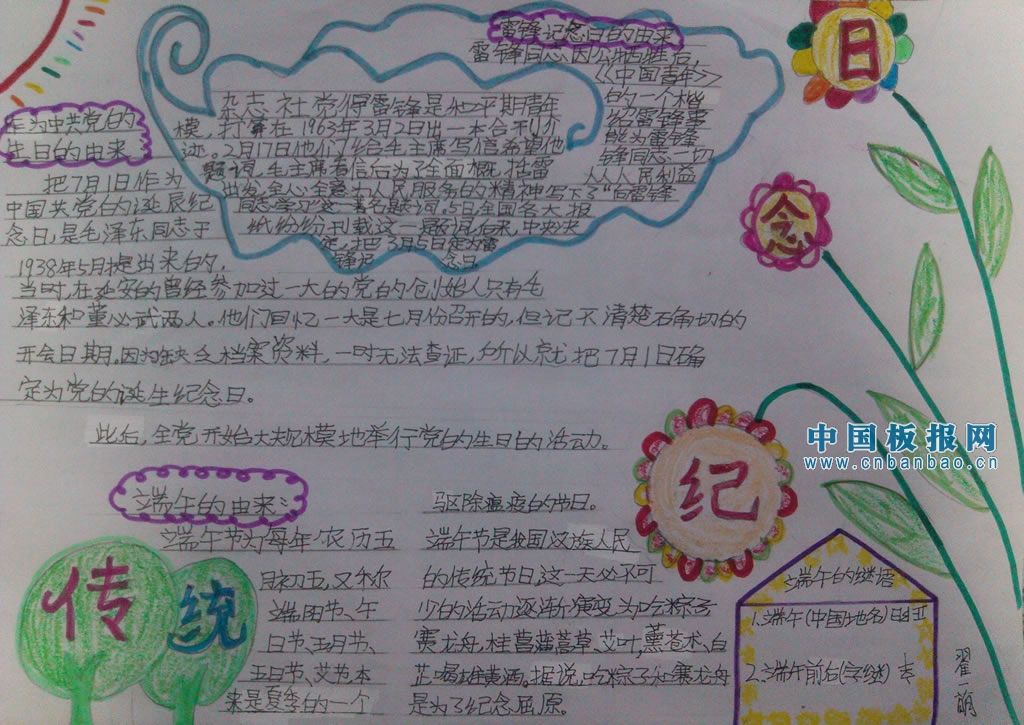 雷锋记念日的由来
雷锋同志因公牺牲后,
《中国青年》
杂志社觉得雷锋是和平期青年
的一个楷
模,打算在1963年3月2日出一本合刊介
绍雷锋事
迹。2月17日他们给毛主席写信希望他
能为雷锋
题词,毛主席看信后为了全面概括雷
锋同志一切
从人民利益
出发,全心全意为人民服务的精神写下了"向雷锋
同志学习"这一著名题词。5日全国各大报
纸纷纷刊载这一题词,后来,中央决
定,把3月5日定为雷
锋记念日
作为中共党的
生日的由来
把7月1日作为
中国共党的诞辰纪
念日,是毛泽东同志于
1938年5月提出来的,
当时,在延安的曾经参加过一大的党的创始人只有毛
泽东和董必武两人。他们回忆一大是七月份召开的,但记不清楚确切的
开会日期。因为缺乏档案资料,一时无法查证,所以就把7月1日确
定为党的诞生纪念日。
此后,全党开始大规模地举行党的生日的活动。
日
念
纪
传统
中国板报网
www.cnbanbao.cn
端午的由来:
端午节为每年农历五
月初五,又称
端阳节、午
日节、五月节、
五日节、艾节本
来是夏季的一个
驱除瘟疫的节日。
端午节是我国汉族人民
的传统节日,这一天必不可
少的活动逐渐演变为吃粽子
赛龙舟,挂菖蒲蒿草、艾叶,薰苍术、白
芷,喝雄黄酒。据说,吃粽子和赛龙舟
是为了纪念屈原。
端午的谜语
1.端午(中国地名)
2.端午前后(字谜)
翟一萌